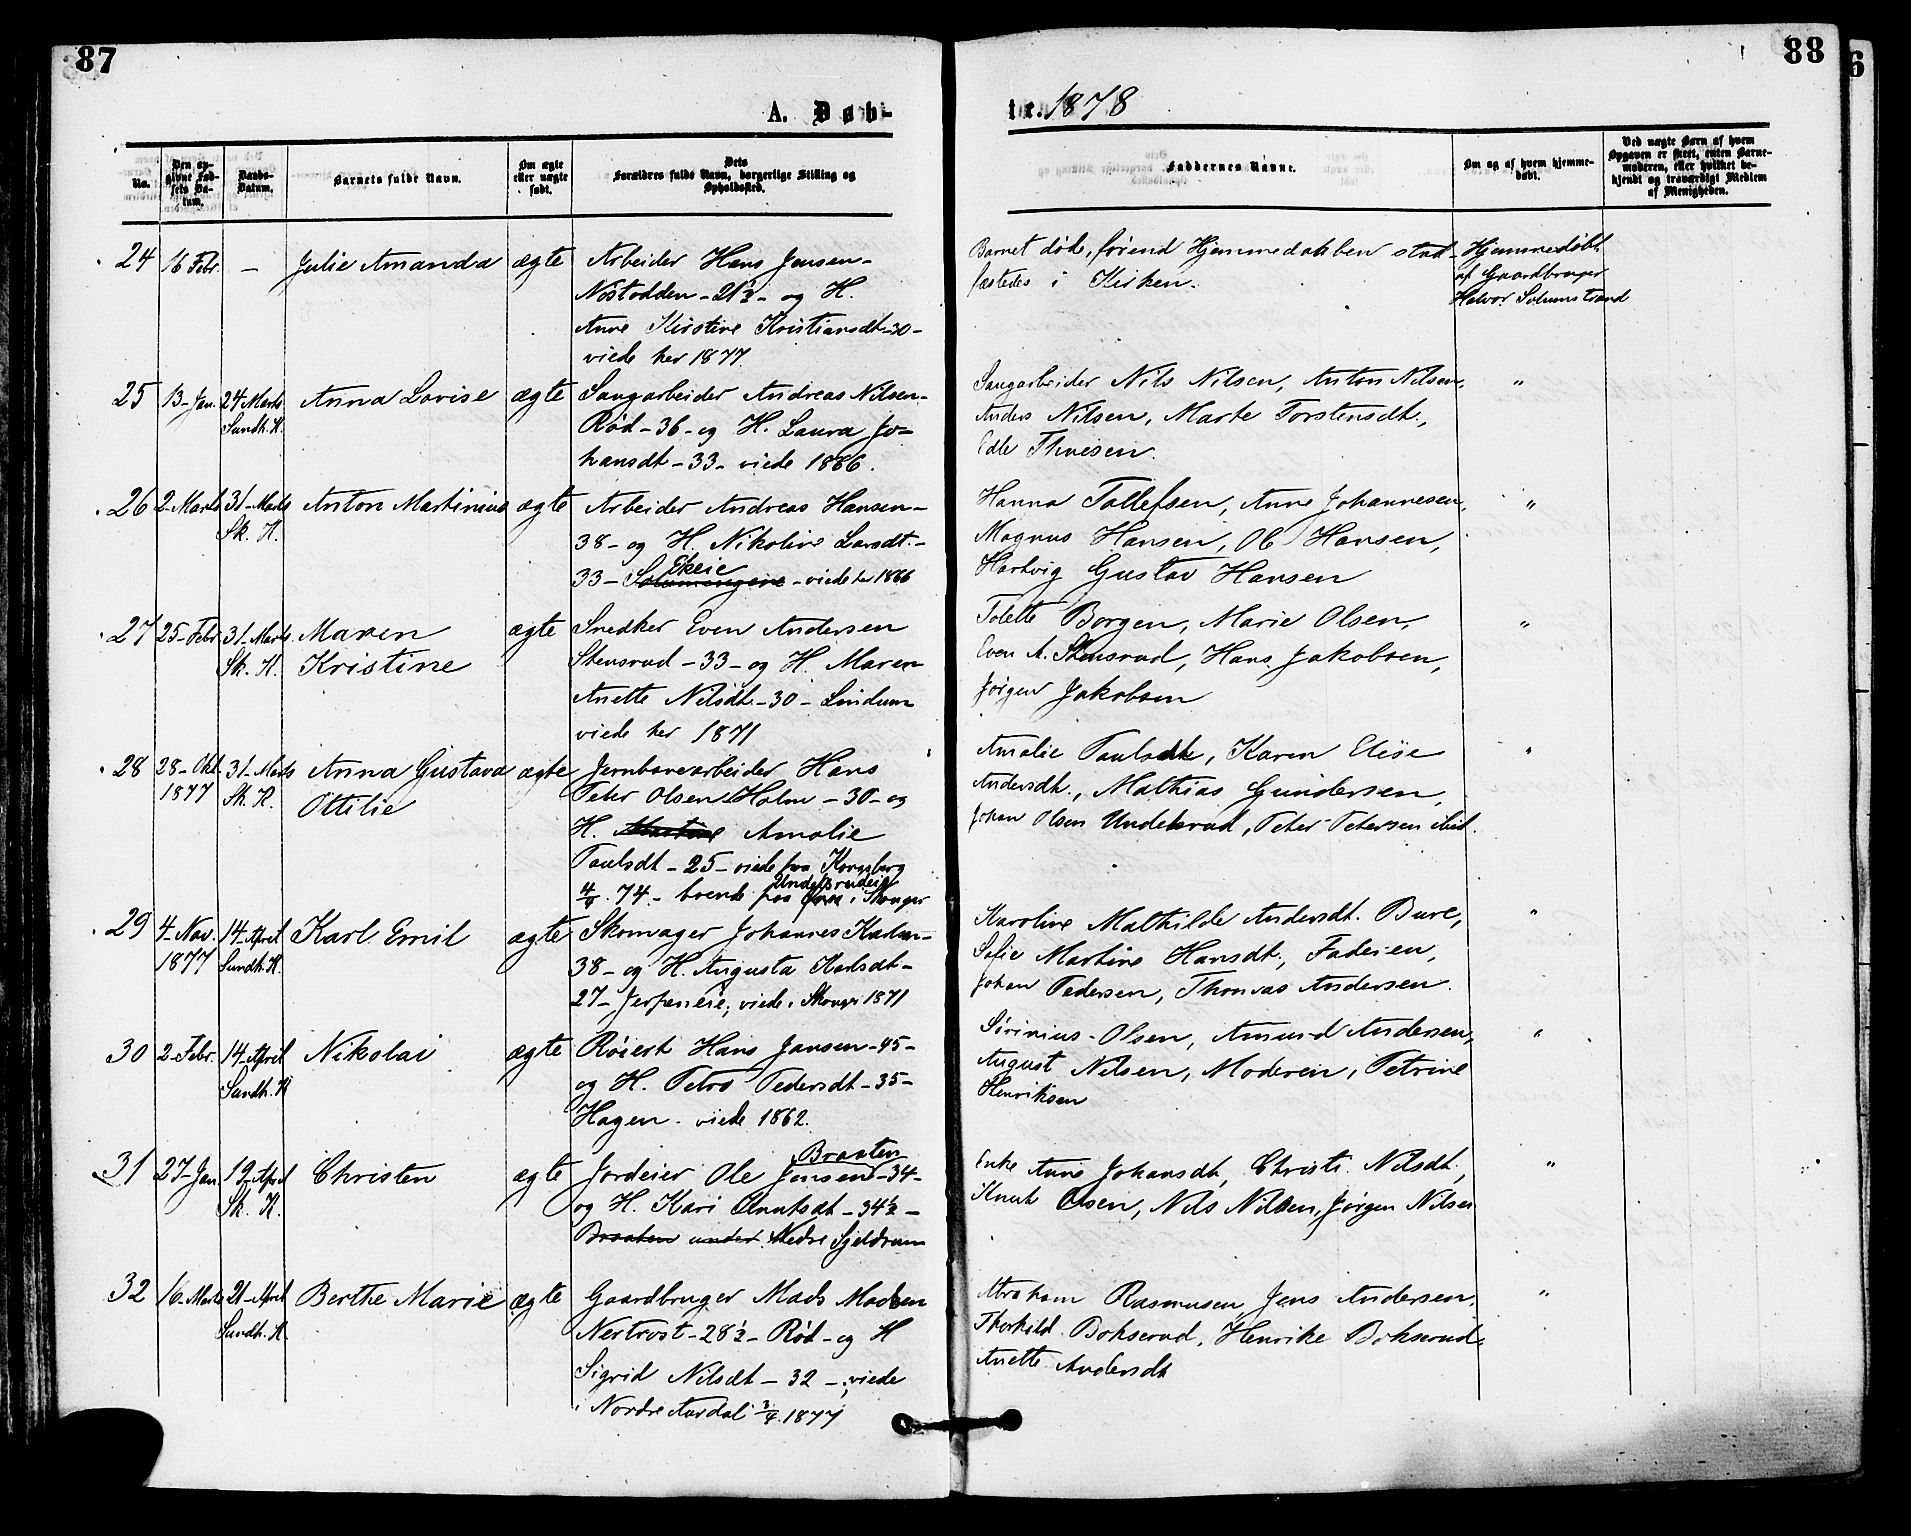 87
88
6
A. Døb-
te. 1878
No.
Den an-
givne Fød-
sels Da-
tum.
Daabs-
Datum.
Barnets fulde Navn.
Om ægte
eller uægte
født.
Dets
Forældres fulde Navn, borgerlige Stilling og
Opholdssted.
Faddernes Navne.
Om og af hvem hjemme-
døbt.
Ved uægte Børn af hvem
Opgaven er skeet, enten Barne-
moderen, eller hvilket be-
kjendt og troværdigt Medlem
af Menigheden.
24 16 Febr. – Julie Amanda ægte Arbeider Hans Jensen-
Nostodden - 21½ - og H.
Anne Kirstine Kristiansdt - 30 -
viede her 1877.
Barnet døde, førend Hjemmedaaben stad-
fæstedes i Kirken.
Hjemmedøbt
af Gaardbruger
Halvor Solumstrand
25 13-Jan. 24 Marts Anna Lovise ægte Saugarbeider Andreas Nilsen-
Sundh. K. Rød - 36 - og H. Laura Jo-
hansdt - 33 - viede 1866.
Saugarbeider Nils Nilsen, Anton Nilsen, "
Anders Nilsen, Marte Torstensdt.,
Edle Thuesen.
26 2-Marts 31-Marts Anton Martinius ægte Arbeider Andreas Hansen-
Sk. K. 38 - og H. Nikoline Larsdt.-
Ekeie
33 - - viede her 1866
Hanna Tollefsen, Anne Johannesen, "
Magnus Hansen, Ole Hansen,
Hartvig Gustav Hansen
27 25-Febr. 31-Marts Maren ægte Snedker Even Andersen
Sk. K. Kristine Stensrud - 33 - og H. Maren
Anette Nilsdt. - 30 - Lindum
viede her 1871
Tolette Borgen, Marie Olsen, "
Even A. Stensrud, Hans Jakobsen,
Jørgen Jakobsen
28 28-Okt. 31-Marts Anna Gustava ægte Jernbanearbeider Hans
1877 Sk. K. Ottilie Peter Olsen Holm - 30 - og
H. Amalie
Paulsdt - 25 - viede paa Kongsberg
74. - boende paa i Skouger
Amalie Paulsdt, Karen Elise "
Andersdt., Mathias Gundersen,
Johan Olsen Undelsrud, Peter Petersen ibid.
29 4-Nov. 14-April Karl Emil ægte Skomager Johannes Karlsen-
1877 Sundh. K. 38 - og H. Augusta Karlsdt-
27 - Jerpeneie, viede i Skouger 1871
Karoline Mathilde Andersdt. Bure, "
Sofie Martine Hansdt., Faderen,
Johan Pedersen, Thomas Andersen.
30 2-Febr. 14-April Nikolai ægte Røiert Hans Jansen - 45 -
Sundh. K og H. Petra Pedersdt - 35 -
Hagen. viede 1862.
Sirinius Olsen, Amund Andersen, "
August Nilsen, Moderen, Petrine
Henriksen
31 27-Jan 19-April Christen ægte Jordeier Ole Jensen Braaten - 34 -
Sk. K. og H. Kari Knutsdt - 34½ -
Braaten under Nedre Sjeldrum
Enke Anne Johansdt, Christi. Nilsdt., "
Knut Olsen, Nils Nilsen, Jørgen Nilsen
32 16-Marts 21-April Berthe Marie ægte Gaardbruger Mads Madsen
Sundh. K. Nertrost - 28½ - Rød - og H
Sigrid Nilsdt - 32 - viede
i Nordre Aurdal 1877
Abraham Rasmusen, Jens Andersen, "
Thorkild Bokserud, Henrike Bokserud
Anette Andersdt